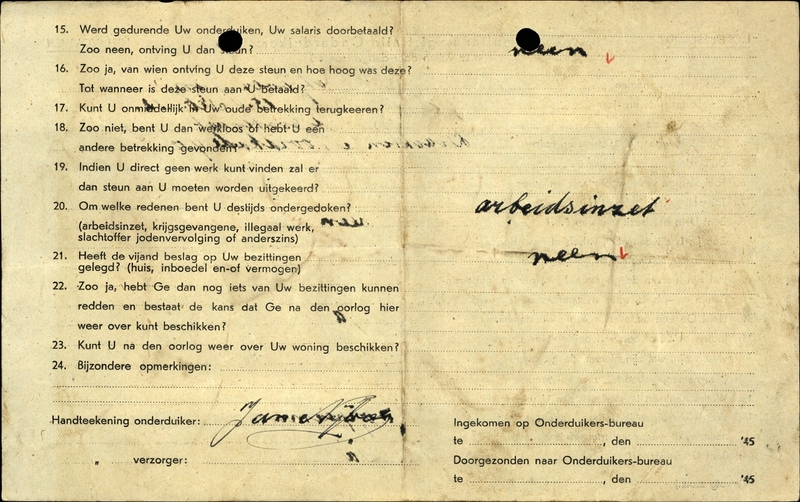 15. Werd gedurende Uw onderduiken, Uw salaris doorbetaald?
Zoo neen, ontving U dan steun? neen
16. Zoo ja, van wien ontving U deze steun en hoe hoog was deze?
Tot wanneer is deze steun aan U betaald?
17. Kunt U onmiddellijk in Uw oude betrekking terugkeeren?
18. Zoo niet, bent U dan werkloos of hebt U een
andere betrekking gevonden?
19. Indien U direct geen werk kunt vinden zal er
dan steun aan U moeten worden uitgekeerd?
20. Om welke redenen bent U destijds ondergedoken? arbeidsinzet
(arbeidsinzet, krijgsgevangene, illegaal werk,
slachtoffer jodenvervolging of anderszins)
21. Heeft de vijand beslag op Uw bezittingen
gelegd? (huis, inboedel en-of vermogen) neen
22. Zoo ja, hebt Ge dan nog iets van Uw bezittingen kunnen
redden en bestaat de kans dat Ge na den oorlog hier
weer over kunt beschikken?
23. Kunt U na den oorlog weer over Uw woning beschikken?
24. Bijzondere opmerkingen:
Handteekening onderduiker:
„ verzorger:
Ingekomen op Onderduikers-bureau
te , den '45
Doorgezonden naar Onderduikers-bureau
te , den '45